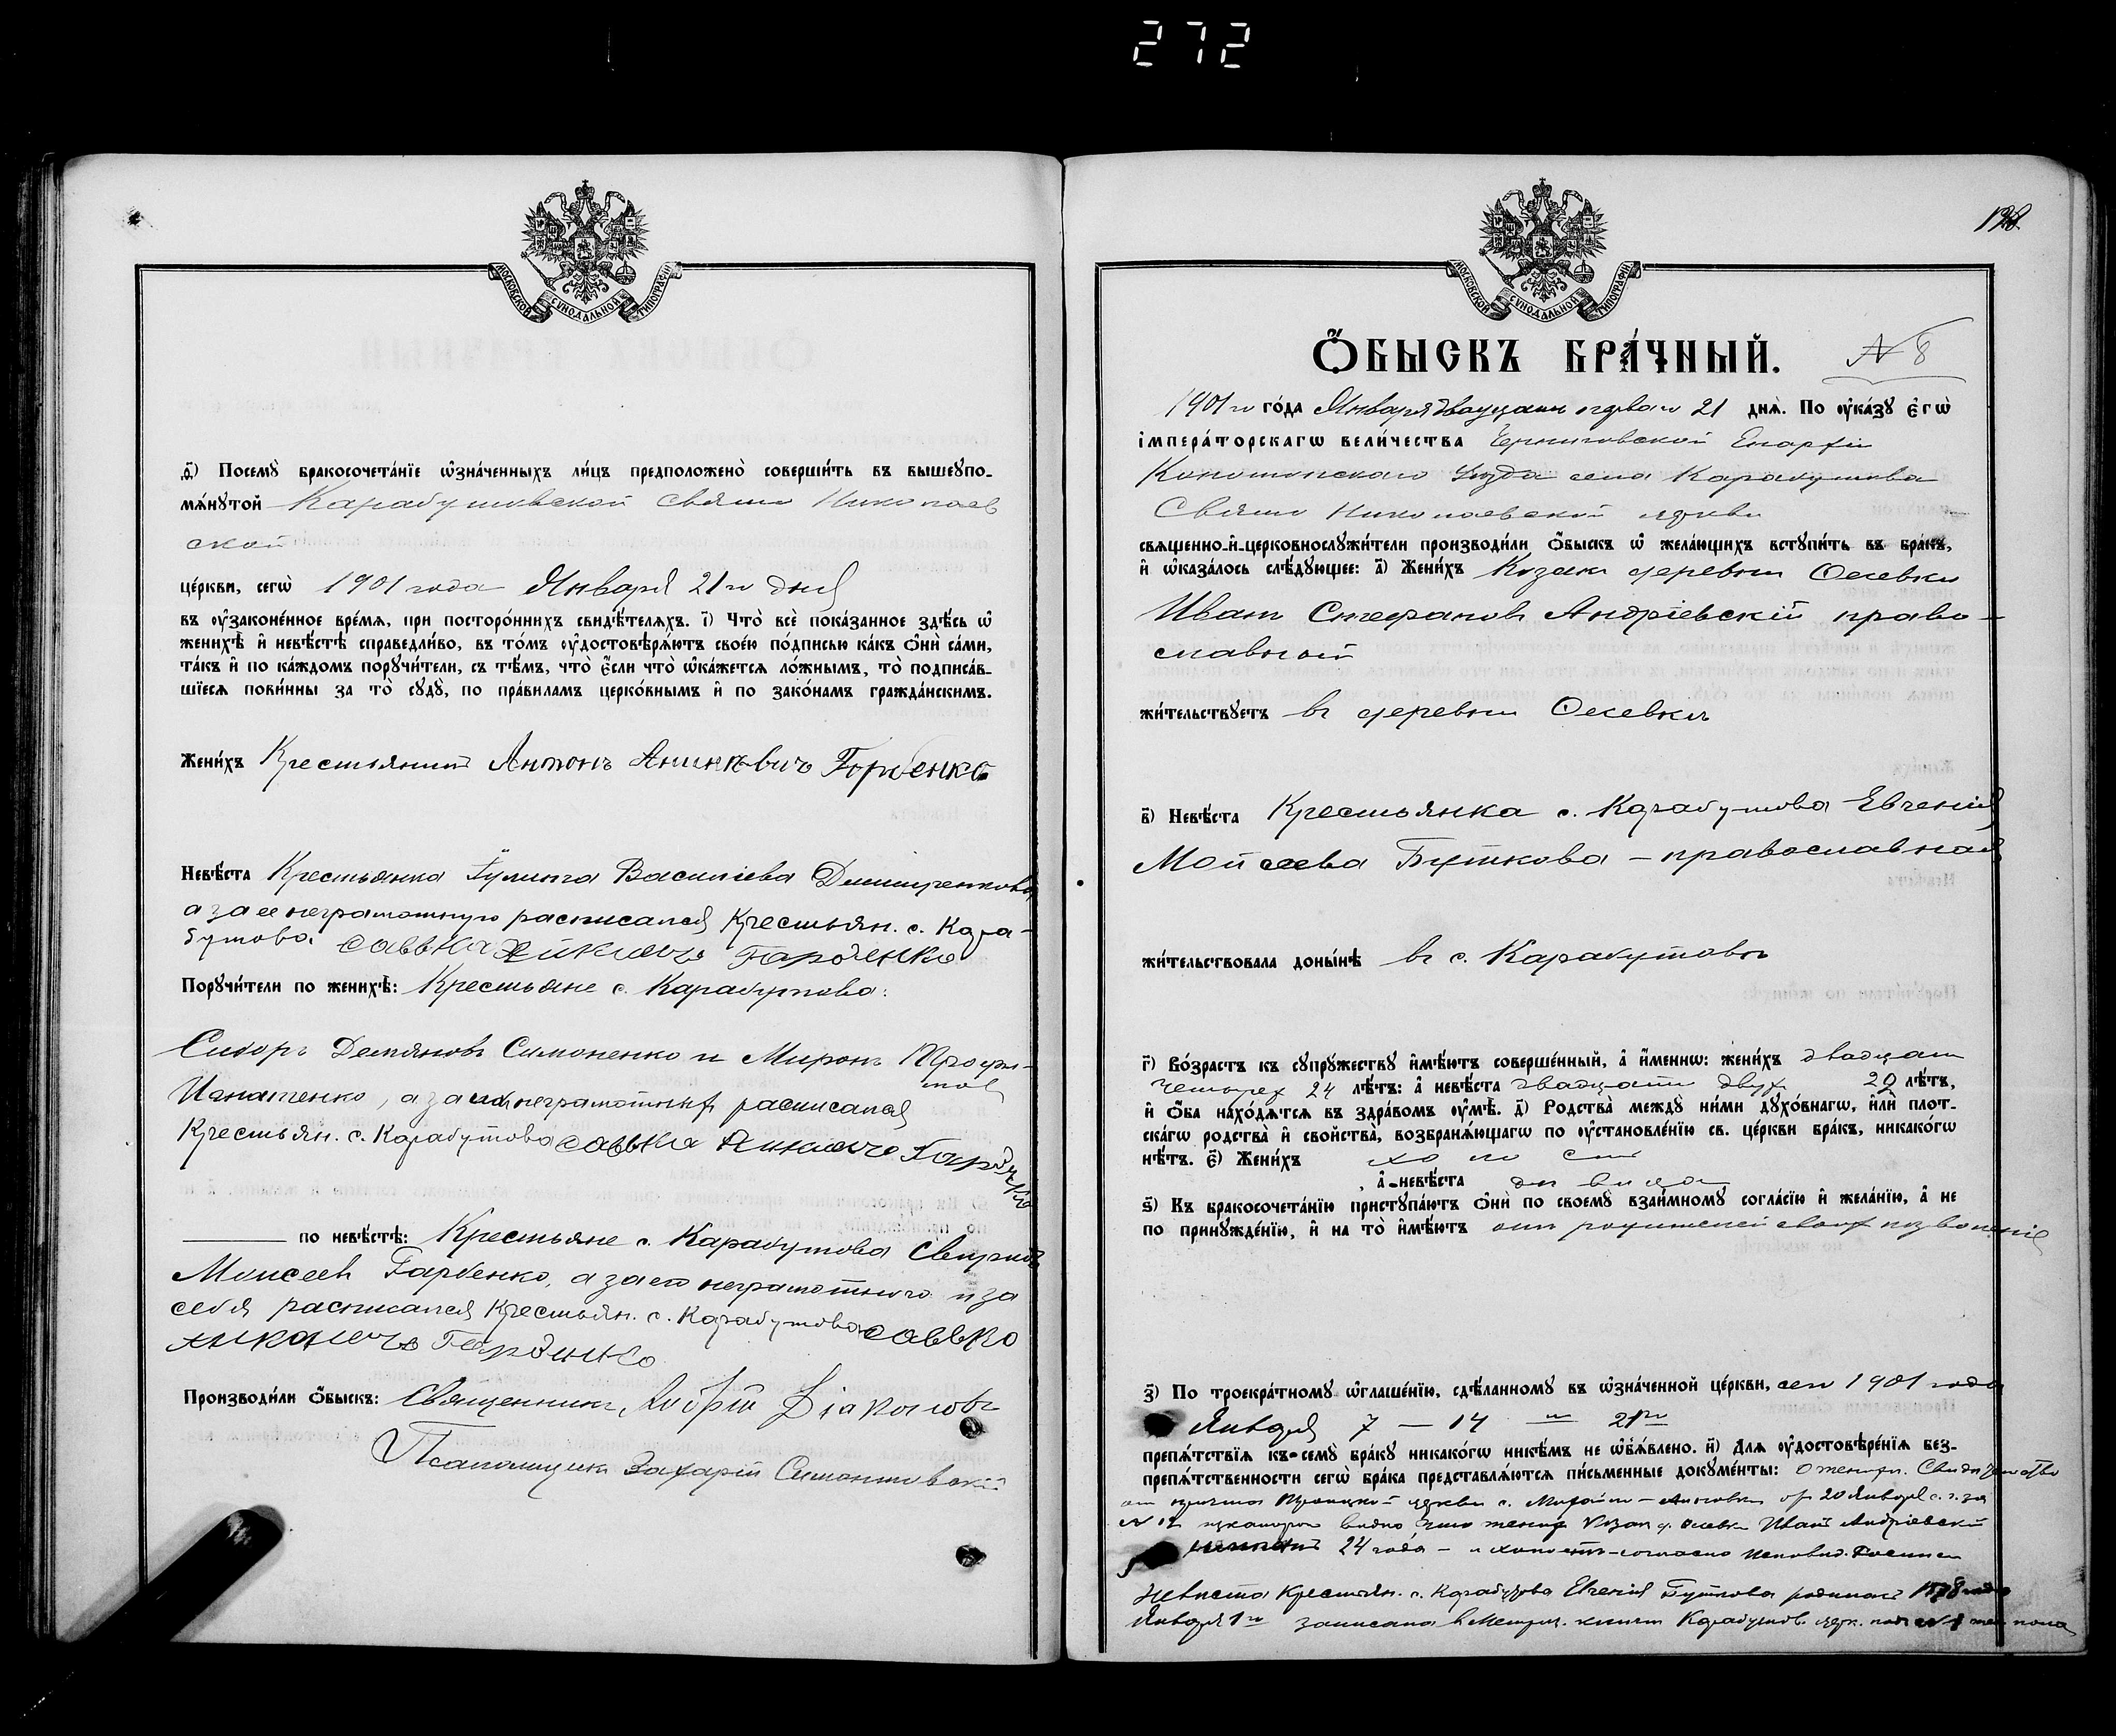 272
МОСКОВСКОЙ СѴНОДАЛЬНОЙ ТИПОГРАФІИ
ѳ҃) Посемꙋ̀ бракосочета́нїе ѡ҆зна́ченныхъ ли́цъ предположено̀ соверши́ть въ вышеꙋпо-
мѧ́нꙋтой Карабутовской Свято Николаев
ской
це́ркви, сегѡ̀ 1901 года Января 21го дня
въ ᲂу҆законе́нное вре́мѧ, при посторо́ннихъ свидѣ́телѧхъ. і҃) Что̀ всѐ пока́занное здѣ́сь ѡ҆
женихѣ̀ и҆ невѣ́стѣ справедли́во, въ то́мъ ᲂу҆достовѣрѧ́ютъ свое́ю по́дписью ка́къ ѻ҆нѝ са́ми,
та́къ и҆ по ка́ждомъ порꙋчи́тели, съ тѣ́мъ, что̀ є҆́сли что̀ ѡ҆ка́жетсѧ ло́жнымъ, то̀ подписа́в-
шїесѧ пови́нны за то̀ сꙋдꙋ̀, по пра́виламъ церко́внымъ и҆ по зако́намъ гражда́нскимъ.
Жени́хъ Крестьянинъ Антонъ Горбенко
Невѣ́ста Крестьянка Гулита Василіева Дмитренкова
а за ее неграмотную расписался Крестьян. с. Кара-
бутова Саввка
Порꙋчи́тели по женихѣ̀: Крестьяне с. Карабутова:
Сидоръ Демяновъ Симоненко и Миронъ Трофи-
мов
Игнатенко, а за их неграмотных расписался
Крестьян. с. Карабутова Саввка
по невѣ́стѣ: Крестьяне с. Карабутова
Моисеев Гарбенко, а за его неграмотного и за
себя расписался Крестьян. с. Карабутова Саввко
Производи́ли ѻ҆́быскъ: Священникъ Андрій Діаконовъ
Псаломщикъ Захарій Симонтовскій
МОСКОВСКОЙ СѴНОДАЛЬНОЙ ТИПОГРАФІИ
Ѻ҆́БЫСКЪ БРА́ЧНЫЙ. № 8
1901 го го́да Января двадцать перваго 21 днѧ̀. По ᲂу҆ка́зꙋ є҆гѡ̀
і҆мпера́торскагѡ вели́чества Черниговской Епархіи
Конотопскаго Уезда села Карабутова
Свято Николаевской церкви
свѧще́нно-и҆-церковнослꙋжи́тели производи́ли ѻ҆́быскъ ѡ҆ жела́ющихъ встꙋпи́ть въ бра́къ,
и҆ ѡ҆каза́лось слѣ́дꙋющее: а҃) Жени́хъ Козакъ деревни Осевки
Иванъ Стефановъ Андріевскій право-
славной
жи́тельствꙋетъ въ деревни Осевки
в҃) Невѣ́ста Крестьянка с. Карабутова Евгенія
Мойсеева Буткова - православная
жи́тельствовала доны́нѣ въ с. Карабутовъ
г҃) Во́зрастъ къ сꙋпрꙋ́жествꙋ и҆мѣ́ютъ соверше́нный, а҆ и҆́меннѡ: жени́хъ двадцати
четырех 24 лѣ́тъ: а҆ невѣ́ста двадцати двух лѣ́тъ,
и҆ ѻ҆́ба нахо́дѧтсѧ въ здра́вомъ ᲂу҆мѣ̀. д҃) Родства̀ междꙋ̀ ни́ми дꙋхо́внагѡ, и҆лѝ плот-
ска́гѡ родства̀ и҆ свойства̀, возбранѧ́ющагѡ по ᲂу҆становле́нїю св. це́ркви бра́къ, никако́гѡ
нѣ́тъ. є҃) Жени́хъ холост
, а҆ невѣ́ста девица
ѕ҃) Къ бракосочета́нїю пристꙋпа́ютъ ѻ҆нѝ по своемꙋ̀ взаи́мномꙋ согла́сїю и҆ жела́нїю, а҆ не
по принꙋжде́нїю, и҆ на то̀ и҆мѣ́ютъ они родителей своих позволеніе
з҃) По троекра́тномꙋ ѡ҆глаше́нїю, сдѣ́ланномꙋ въ ѡ҆зна́ченной це́ркви, сего 1901 года
Января 7 — 14 и 21го
препѧ́тствїѧ къ семꙋ̀ бра́кꙋ никако́гѡ нике́мъ не ѡ҆б̾ѧ́влено. и҃) Длѧ ᲂу҆достовѣре́нїѧ без-
препѧ́тственности сегѡ̀ бра́ка представлѧ́ютсѧ пи́сьменные докꙋме́нты: О женихе. Свидетельство
от причта Троицкой церкви с. от 20 Января с. г. за
№ 12 из которого видно что жених Козак д. Осевки Иван Андріевскій
24 года - и холостъ - согласно исповед. росписи
Невеста Крестьян. с. Карабутова Евгенія Буткова родилась 1878 года
Января 1го записана в Метрич. книги Карабутов. церк. под № 1 жен пола